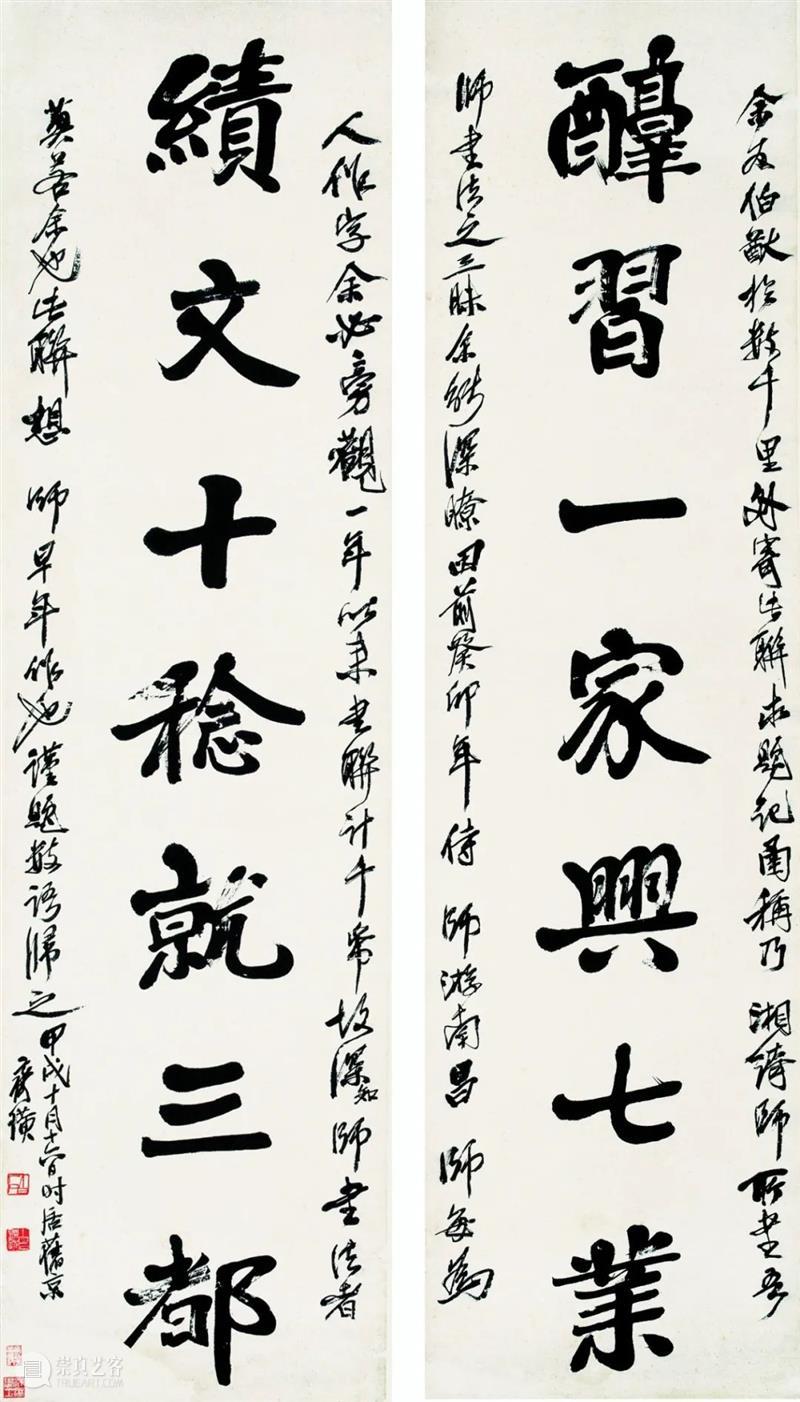 余友伯猷於數千里外寄此聯求題記函稱乃 湘綺師所書吾
醇習一家興七業
師書法之三昧余能深瞭因前癸卯年侍 師游南昌 師每為
人作字余必旁觀一年以來書聯計千帋故深知 師書法者
績文十稔就三都
莫若余也此聯想 師早年作也謹題數語歸之甲戌十月十六日時居舊京
齊璜
崇真艺客